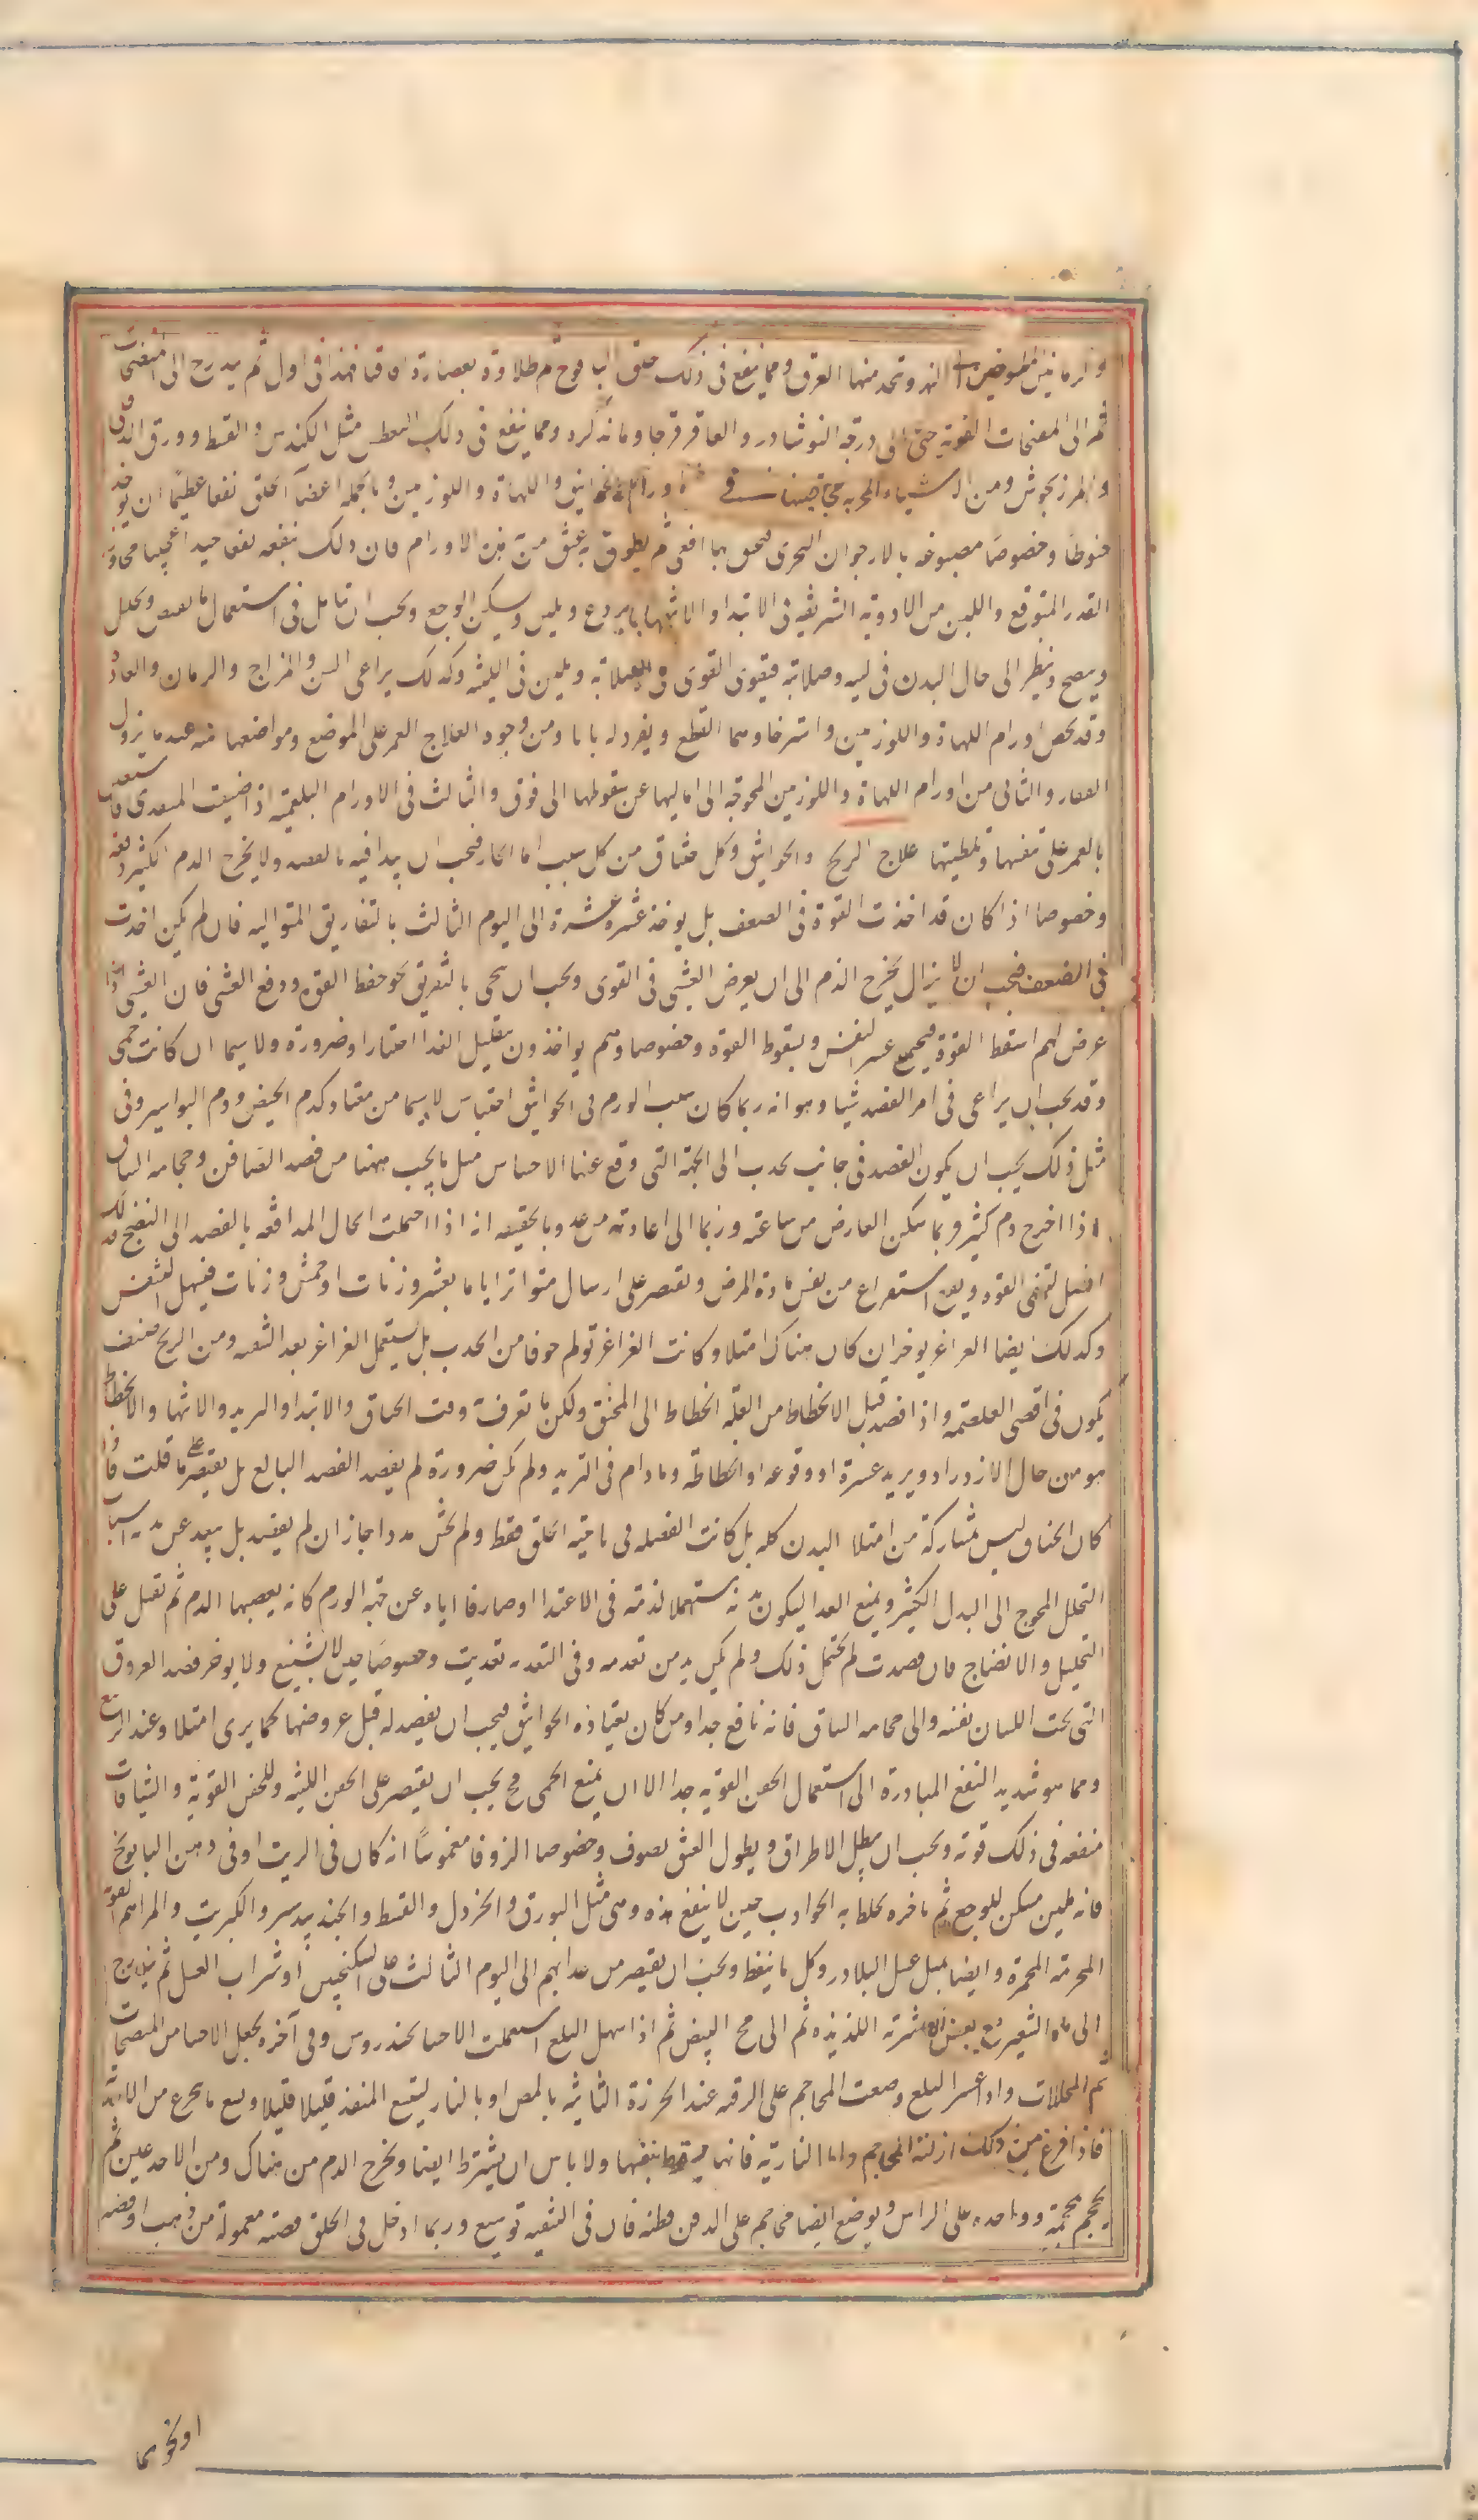 والرمانين الحامضين الهندو تحد منها العرق ومما ينفع فى ذلك حلق اليافوخ ثم طلاوة بعصارة اقاقيا فهذا فى اول ثم يدرج الى المنضجات
ثم الى المفتحات القوية حتى الى درجة النوشادر والعاقرقرحا وما نذكره ومما ينفع فى ذلك العطس مثل الكندس والقسط وورق الدفلى
والمرزنجوش ومن الاشياء المجربة فى اورام الخوانيق واللهاة واللوزتين وبالجملة اعضاء الحلق نفعا عظيما ان يوخذ
خيوطا وخصوصا مصبوغه بالارجوان البحرى فيخنق بها افعى ثم يطوق به عنق من به هذه الاورام فان ذلك ينفعه نفعا جيدا عجيبا مجاوز
القدر المتوقع واللبن من الادوية الشريفة فى الابتدا والانتها بما يردع ويلين ويسكن الوجع ويجب ان تامل فى استعمال ما يقبض ويحلل
وينضج وينظر الى حال البدن فى لينه وصلابته فيقوى القوى فى الصلابة ويلين فى اللينة وكذلك يراعى السن والمزاج والزمان والعادة
وقد يخص اورام اللهاة واللوزتين واسترخاوهما القطع ويفرد له بابا ومن وجوه العلاج الغمز على الموضع ومواضعها منه عند ما يزول
الفقار والثانى من اورام اللهاة واللوزتين المحوجة الى امالتها عن سقوطها الى فوق والثالث فى الاورام البلغمية اذا ضيقت المنفذ فاستعين
بالغمز على تنفيسها وتلطيفها علاج الذبح والخوانيق وكل خناق من كل سبب اما الحار فيجب ان يبدا فيه بالفصد ولا يخرج الدم الكثير دفعة
وخصوصا اذا كان قد اخذت القوة فى الضعف بل يوخذ عشرة عشرة الى اليوم الثالث بالتفاريق المتواليه فان لم يكن اخذت
فى الضعف فيجب ان لا يزال يخرج الدم الى ان يعرض الغشى فى القوى ويجب ان ينحى بالتفريق نحو حفظ القوة ودفع الغشى فان الغشى اذا
عرض لهم اسقط القوة فيجتمع عسر النفس وسقوط القوة وخصوصا وهم يواخذون بتقليل الغذا اختيارا وضرورة ولا سيما ان كانت حمى
وقد يجب ان يراعى فى امر الفصد شيا وهو انه ربما كان سبب الورم فى الخوانيق احتباس لا سيما من معتاد كدم الحيض ودم البواسير وفى
مثل ذلك يجب ان يكون الفصد فى جانب يجذب الى الجهة التى وقع عنها الاحتباس مثل ما يجب ههنا من فصد الصافن وحجامة الساق
اذا اخرج دم كثير وربما سكن العارض من ساعته وربما الى اعادته من غد وبالحقيقه انه اذا احتملت الحال المدافعة بالفصد الى النضج فذلك
افضل لتبقى القوه ويقع استفراغ من نفس مادة المرض ويقتصر على ارسال متواتر اياما بعشر وزنات او خمس وزنات فيسهل التنفس
وكذلك ايضا الغراغر يوخر ان كان هناك امتلا وكانت الغراغر تولم خوفا من الجذب بل يستعمل الغراغر بعد التنقيه ومن الذبح صنف
يكون فى اقصى الغلصمة واذا فصد قبل الانحطاط من العلة انحطاط الى المخنق ولكن ما تعرف وقت الخناق والابتدا والتزيد والانتها والانحطاط
هو من حال الازدراد وتزيد عسرة او وقوعه او انحطاطه وما دام فى التزيد ولم يكن ضرورة لم يفصد الفصد البالغ بل يقتصر على ما قلت فان
كان الخناق ليس بمشاركة من امتلا البدن كله بل كانت الفضله فى ناحية الحلق فقط ولم يخش مددا جاز ان لم يفصد بل يبعد عن
التحلل المحوج الى البدل الكثير ويمنع الغذا ليكون بدنه مستعملا لذمة فى الاغتذا او صارفا اياه عن جهة الورم كانه يغصبها الدم ثم تقبل على
التحليل والانضاج فان فصدت لم يحتمل ذلك ولم يكن بد من تغذيه وفى التغذيه تعذيب وخصوصا حين لا يشبع ولا يوخر فصد العروق
التى تحت اللسان بغته والى حجامه الساق فانه نافع جدا ومن كان يعتاده الخوانيق فيجب ان يفصد له قبل عروضها كما يرى امتلا وعند الربيع
ومما هو شديد النفع المبادرة الى استعمال الحقن القويه جدا الا ان يمنع الحمى فح يجب ان يقتصر على الحقن اللينه وللحقن القوية والشيافات
منفعه فى ذلك قوته ويجب ان يطيل الاطراف ويطول العنق بصوف وخصوصا الزوفا مغموسا انه كان فى الزيت او فى دهن البابونج
فانه ملين مسكن للوجع ثم باخره يخلط به الجواذب حين لا ينفع هذه وهى مثل البورق والخردل والقسط والجندبيدستر والكبريت والمراهم القوية
المحرقة المحمرة وايضا بمثل عسل البلادر وكل ما ينفط ويجب ان يقتصر من غذائهم الى اليوم الثالث على السكنجبين او شراب العسل ثم يتدرج
الى ماء الشعير مع بعض الاشربه اللذيذه ثم الى مح البيض ثم اذا سهل البلع استعملت الاحسا بخندروس وفى آخره يجعل الاحسا من المنضجات
ثم المحللات واذا عسر البلع وضعت المحاجم على الرقبه عند الخرزة الثانيه بالمص او بالنار ليتسع المنفذ قليلا قليلا ويسع ما يجرع من الاغذيه
فاذا فرغ من ذلك ازلت المحاجم واما الناريه فانها يسقط بنفسها ولا باس ان يشرط ايضا ويخرج الدم من هناك ومن الاخدعين ثم
يحجم محجمة وواحده على الراس ويوضع ايضا محاجم على الذقن قطنه فان فى التنقيه توسيع وربما ادخل فى الحلق قصبه معموله من ذهب او فضه
او نحوهما